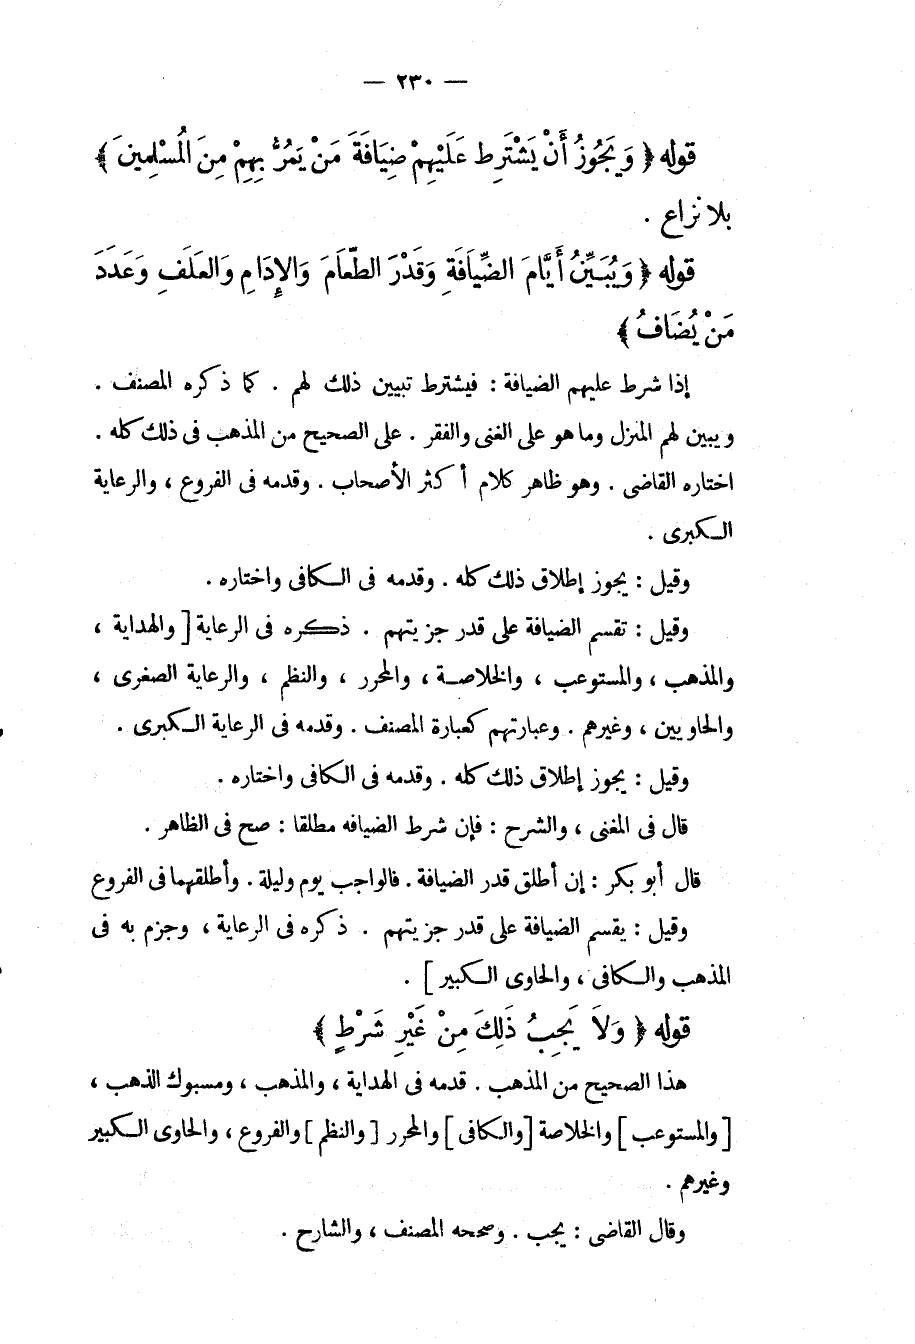 — ٢٣٠ —
قوله ﴿ وَيَجُوزُ أَنْ يَشْتَرِط عَلَيْهِمْ ضِيَافَةَ مَنْ يَمُرُّ بِهِمْ مِنَ الْمُسْلِمِينَ ﴾
بلا نزاع .
قوله ﴿ وَيُبَيِّنُ أَيَّامَ الضِّيَافَةِ وَقَدْرَ الطَّعَامَ وَالإِدَامِ وَالعَلَفِ وَعَدَدَ
مَنْ يُضَافُ ﴾
إذا شرط عليهم الضيافة : فيشترط تبيين ذلك لهم . كما ذكره المصنف .
ويبين لهم المنزل وما هو على الغنى والفقر . على الصحيح من المذهب فى ذلك كله .
اختاره القاضى . وهو ظاهر كلام أكثر الأصحاب . وقدمه فى الفروع ، والرعاية
الكبرى .
وقيل : يجوز إطلاق ذلك كله . وقدمه فى الكافى واختاره .
وقيل : تقسم الضيافة على قدر جزيتهم . ذكره فى الرعاية [ والهداية ،
والمذهب ، والمستوعب ، والخلاصة ، والمحرر ، والنظم ، والرعاية الصغرى ،
والحاويين ، وغيرهم . وعبارتهم كعبارة المصنف . وقدمه فى الرعاية الكبرى .
وقيل : يجوز إطلاق ذلك كله . وقدمه فى الكافى واختاره .
قال فى المغنى ، والشرح : فإن شرط الضيافه مطلقا : صح فى الظاهر .
قال أبو بكر : إن أطلق قدر الضيافة . فالواجب يوم وليلة . وأطلقهما فى الفروع
وقيل : يقسم الضيافة على قدر جزيتهم . ذكره فى الرعاية ، وجزم به فى
المذهب والكافى ، والحاوى الكبير ] .
قوله ﴿ وَلاَ يَجِبُ ذَلِكَ مِنْ غَيْرِ شَرْطٍ ﴾
هذا الصحيح من المذهب . قدمه فى الهداية ، والمذهب ، ومسبوك الذهب ،
[ والمستوعب ] والخلاصة [ والكافى ] والمحرر [ والنظم ] والفروع ، والحاوى الكبير
وغيرهم .
وقال القاضى : يجب . وصححه المصنف ، والشارح .